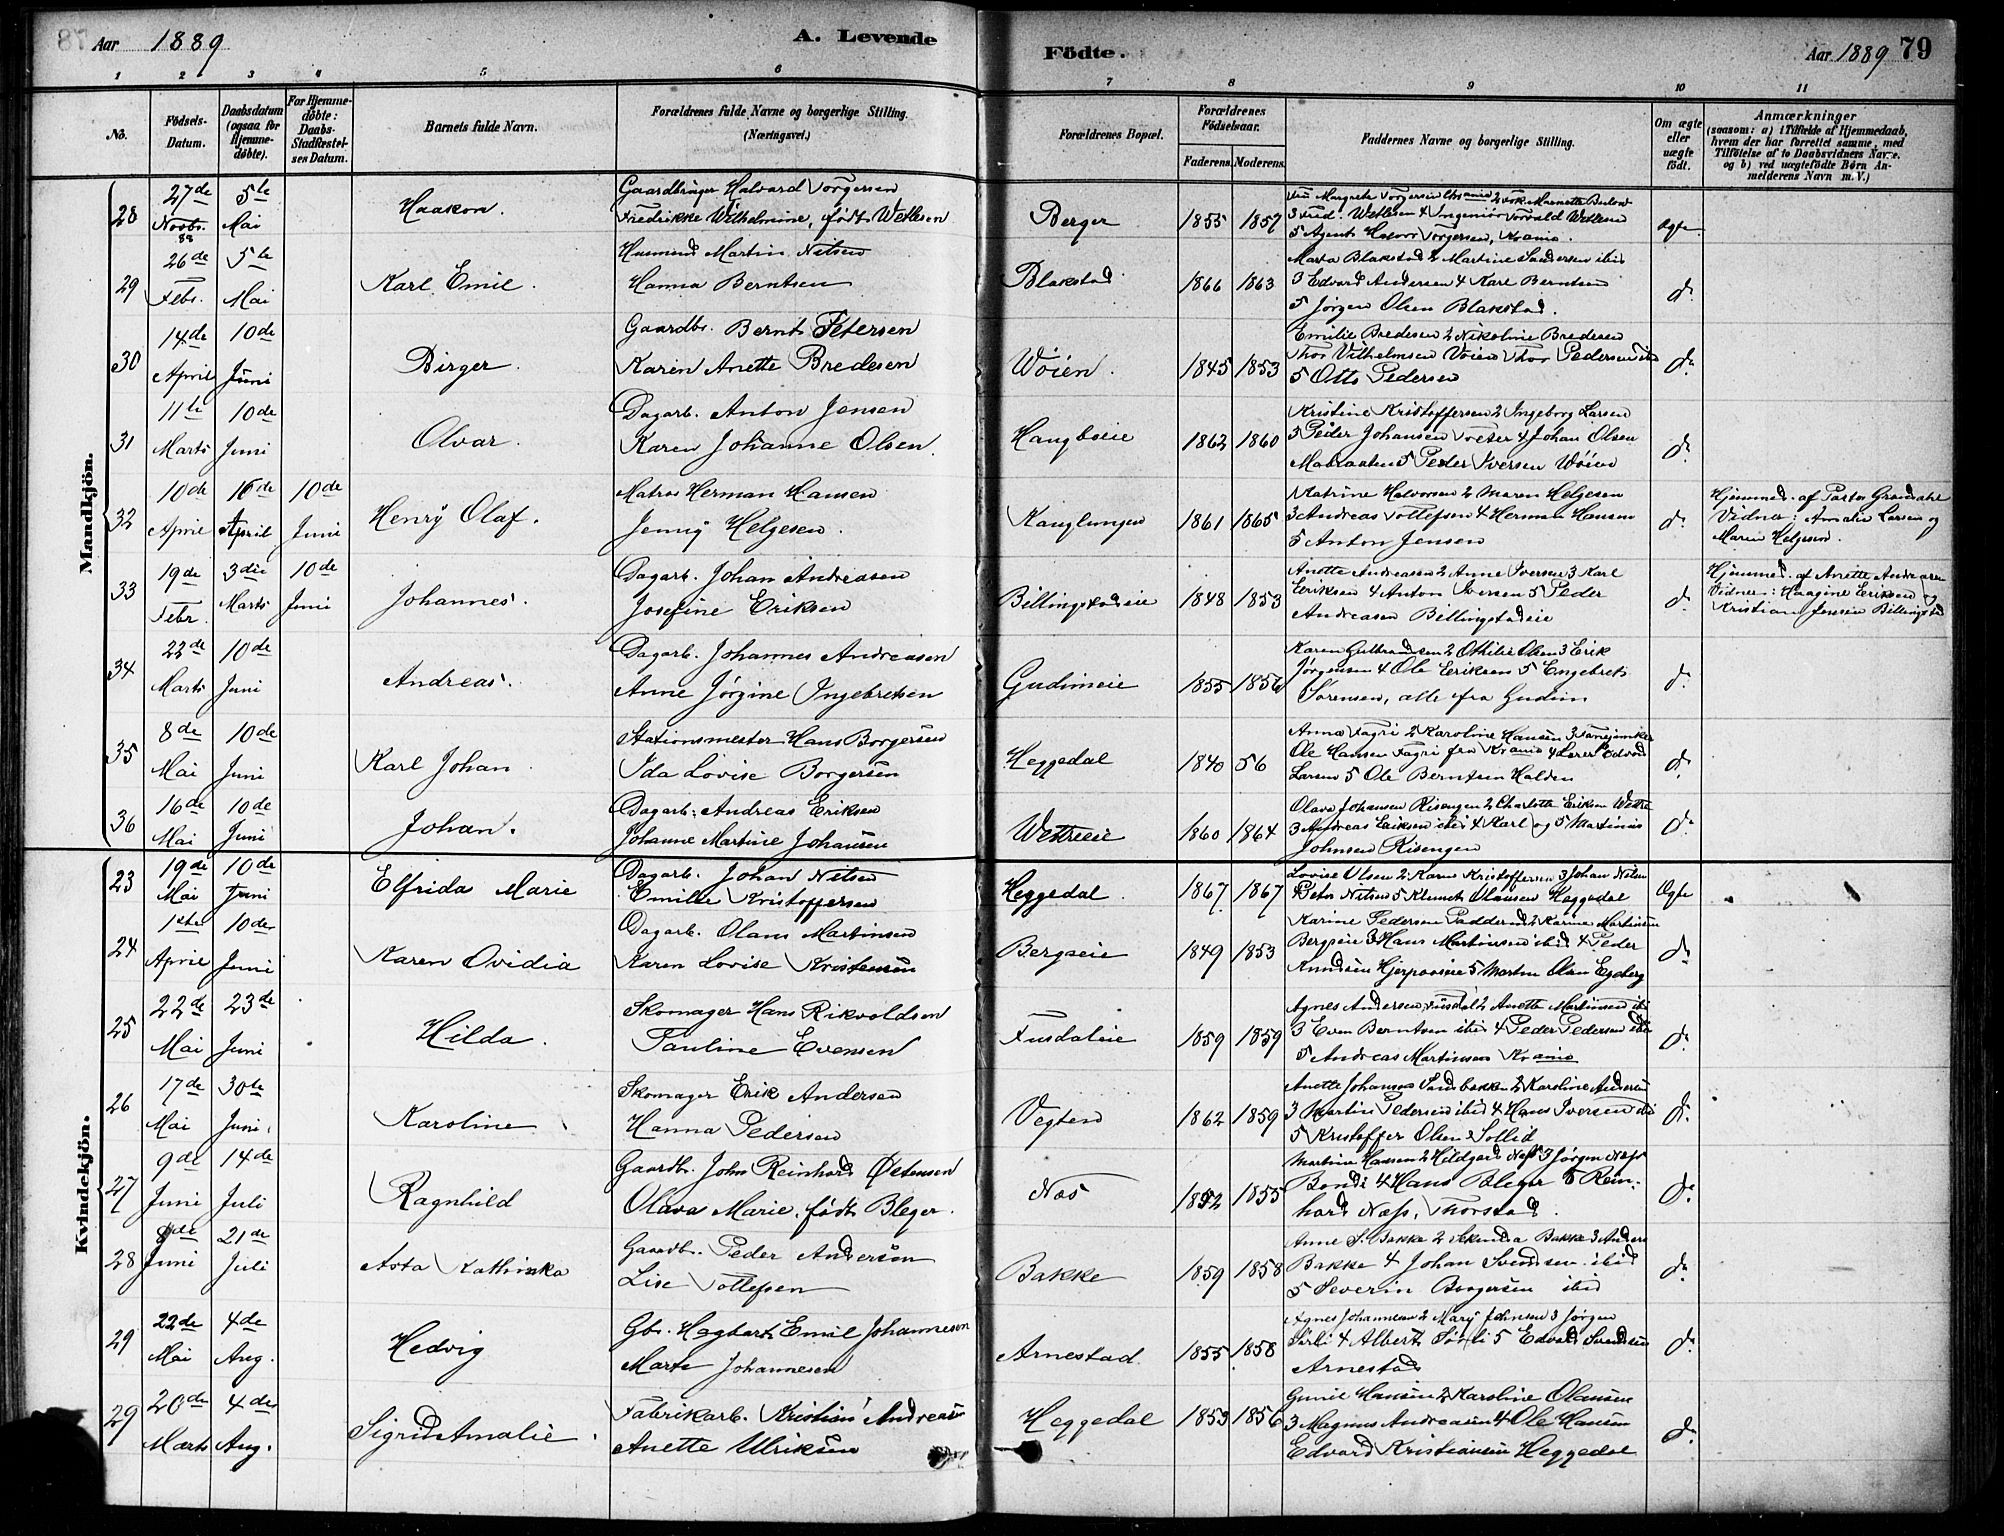 Aar 1889 A. Levende
Födte. Aar 1889 79
1 2 3 4 5 6 7 8 9 10 11
No.
Födsels-Datum.
Daabsdatum (ogsaa for Hjemme-döbte).
For Hjemme-döbte: Daabs-Stadfæstel-ses Datum.
Barnets fulde Navn.
Forældrenes fulde Navne og borgerlige Stilling. (Næringsvei.)
Forældrenes Bopæl.
Forældrenes Födselsaar.
Faderens. Moderens.
Faddernes Navne og borgerlige Stilling.
Om ægte eller uægte födt.
Anmærkninger (saasom: a) i Tilfælde af Hjemmedaab, hvem der har forrettet samme, med Tilföielse af to Daabsvidners Navne, og b) ved uægtefödte Börn An-melderens Navn m. V.)
Mandkjön.
28 27de Novbr. 88 5te Mai Haakon.
Gaardbruger Halvard Torgersen
Fredrikke Wilhelmine, født Wettesen
Berger 1855 1857
5 Agent Halvor Torgersen, Krania. Ægte
29 26de Febr. 5te Mai Karl Emil.
Husmand Martin Nilsen
Hanna Berntsen
Blakstad 1866 1863
Marta Blakstad 2 Martine Andersen ibid
3 Edvard Andersen 4 Karl Berntsen
5 Jørgen Olsen Blakstad. do
30 14de April 10de Juni Birger.
Gaardbr. Bernt Petersen
Karen Anette Bredesen
Wöien. 1845 1853
Emilie Bredesen 2 Nikoline Bredesen
Thor Vilhelmsen Voien Thor Pedersen ibid
5 Otto Pedersen do
31 11te Marts 10de Juni Olvar.
Dagarb. Anton Jensen
Karen Johanne Olsen.
Haugboeie 1862 1860
Kristine Kristoffersen 2 Ingeborg Larsen
3 Peder Johansen Tveter 4 Johan Olsen
5 Peder Iversen Wöien do
32 10de April 16de April 10de Juni Henry Olaf.
Matros Herman Hansen
Jenny Helgesen.
Kauglungen 1861 1865
Katrine Halvorsen 2 Maren Helgesen
3 Andreas Tollefsen 4 Herman Hansen
5 Anton Jensen do
Hjemmed. af Pastor Grøndahl
Vidner: Amalie Larsen og
Maren Helgesen.
33 19de Febr. 3die Marts 10de Juni Johannes.
Dagarb. Johan Andreasen
Josefine Eriksen
Billingstadeie 1848 1853
Anette Andreasen 2 Anne Iversen 3 Karl
Eriksen 4 Anton Iversen 5 Peder
Andreasen Billingstadeie do
Hjemmed. af Anette Andreasen
Vidner: Haagine Eriksen og
Kristian Jensen Billingstad
34 22de Marts 10de Juni Andreas.
Dagarb. Johannes Andreasen
Anne Jørgine Ingebretsen
Gudimeie 1855 1856
Karen Gulbrandsen 2 Othilie Olsen 3 Erik
Jørgensen 4 Ole Eriksen 5 Engebret
Sørensen, alle fra Gudim do
35 8de Mai 10de Juni Karl Johan
Stationsmester Hans Borgersen
Ida Lovise Borgersen
Heggedal 1840 56
Anna Fagri 2 Karoline Hansen
Ole Hansen Fagri fra Krania 4 Lærer Edvard
Larsen 5 Ole Berntsen Halden do
36 16de Mai 10de Juni Johan.
Dagarb. Andreas Eriksen
Johanne Martine Johansen
Wettreeie 1860 1864
Olava Johansen Risengen 2 Charlotte Eriksen Wettre
3 Andreas Eriksen ibid 4 Karl og 5 Martinius
Johnsen Risengen do
Kvindekjön.
23 19de Mai 10de Juni Elfrida Marie
Dagarb. Johan Nilsen
Emilie Kristoffersen
Heggedal. 1867 1867
Lovise Olsen 2 Karen Kristoffersen 3 Johan Nilsen
Peter Nilsen 5 Klemet Olausen Heggedal Ægte
24 1ste April 10de Juni Karen Ovidia
Dagarb. Olaus Martinsen
Karen Lovise Kristensen
Bergseie 1849 1853
Karine Pedersen 2 Karine Martinsen
Bergseie 3 Hans Martinsen ibid 4 Peder
5 Martin Olsen Egeberg do
25 22de Mai 23de Juni Hilda.
Skomager Hans Rikvoldsen
Pauline Evensen
Fusdaleie 1859 1859
Agnes Andersen Fusdal 2 Anette Martinsen ibid
3 Even Berntsen ibid 4 Peder Pedersen ibid
5 Andreas Martinsen Krania do
26 17de Mai 30te Juni. Karoline
Skomager Erik Andersen
Hanna Pedersen
Vegten 1862 1859
Anette Johansen Sandbakken 2 Karoline Andersen
3 Martin Pedersen ibid 4 Hans Iversen ibid
5 Kristoffer Olsen Sollid do
27 9de Juni 14de Juli Ragnhild
Gaardbr. John Reinhard Østensen
Olava Marie, født Bleger.
Nes 1852 1855
Martine Hansen 2 Hildgard Næss 3 Jørgen Næss
Bondi 4 Hans Bleger 5 Rein-
hard Næss, Thorstad. do
28 8de Juni 21de Juli Asta Kathinka
Gaardb. Peder Andersen
Lise Tollefsen
Bakke 1859 1858
Anne S. Bakke 2 Bakke 3 Anders
Bakke 4 Johan Svendsen ibid
5 Severin Borgersen ibid do
29 22de Mai 4de Aug. Hedvig
Gbr. Hagbart Emil Johannesen
Marte Johannesen
Arnestad. 1855 1858
Agnes Johannesen 2 Mary Johnsen 3 Jørgen
Sørli 4 Albert Sørli 5 Edvard Svendsen
Arnestad do
29 20de Marts 4de Aug. Sigrid Amalie.
Fabrikarb. Kristian Andreasen
Anette Ulriksen
Heggedal 1853 1856
Gunil Hansen 2 Karoline Olausen
3 Magnus Andreasen 4 Ole Hansen
Edvard Kristiansen Heggedal do